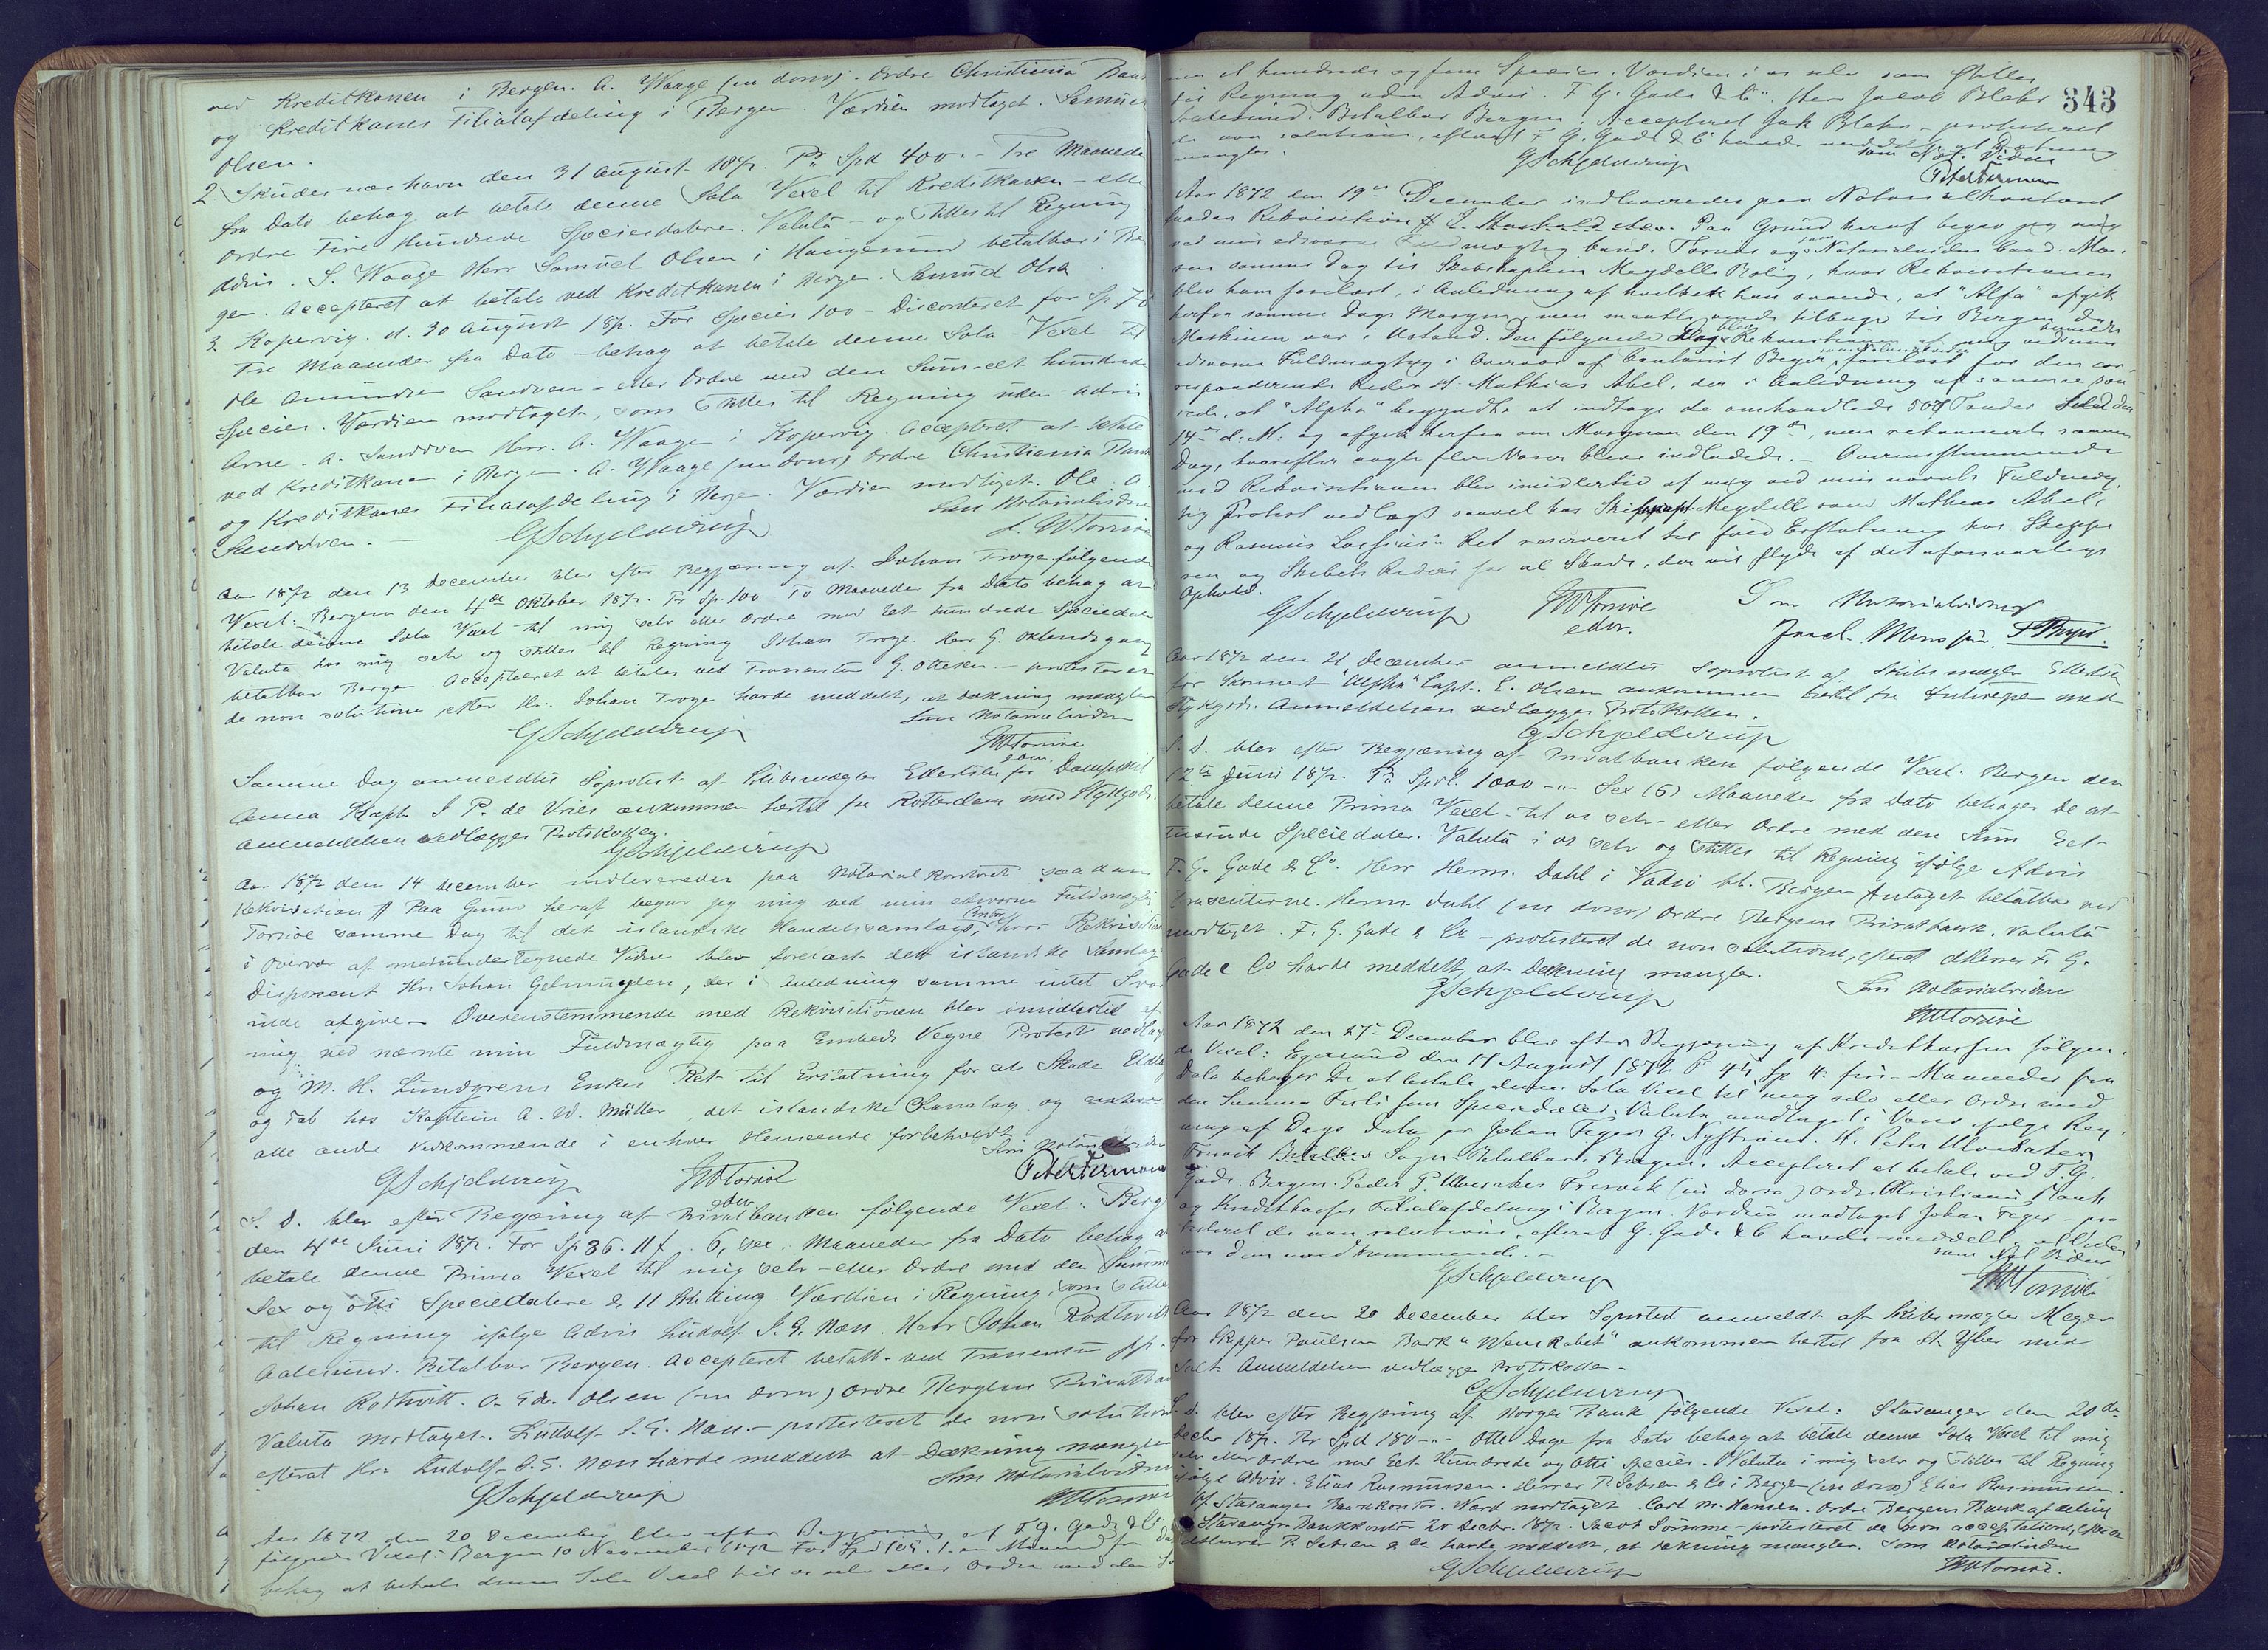 ved Kreditkassen i Bergen. A. Waage (in dorso). Ordre Christiania Bank
og Kreditkasses Filialafdeling i Bergen. Værdien modtaget. Samuel
Olsen.
2 Skudesnæshavn den 31 August 1872. Pr Spd 400. - Tre Maaneder
fra Dato behag at betale denne Sola Vexel til Kreditkassen - eller
Ordre Fire Hundrede Speciesdalere. Valuta - og stilles til Regning
Advis. S. Waage Herr Samuel Olsen i Haugesund betalbar i Ber
gen. Accepteret at betale ved Kreditkassen i Bergen. Samuel Olsen.
3. Kopervig. d. 30 August 1872. For Species 100 - Disconteret for Sp 70
Tre Maaneder fra Dato - behag at betale denne Sola - Vexel - til
Ole Amundsen Sandven - eller Ordre med den Sum - et hundrede
Species. Værdien modtaget, som stilles til Regning uden advis
Arne. A. Sandven Herr. A. Waage i Kopervig. Accepteret at betale
ved Kreditkassen i Bergen. A. Waage (in dorso) Ordre Christiania Bank
og Kreditkasses Filialafdeling i Bergen. Værdien modtaget. Ole A.
Sandven. - Som Notarialvidne
GSchjelderup
Aar 1872 den 13 December blev efter Begjæring af Johan Troye følgende
Vexel: Bergen den 4de Oktober 1872. Pr Sp. 100 - To Maaneder fra Dato behag at
betale denne Sola Vexel til mig selv eller Ordre med Et hundrede Speciedaler
Valuta hos mig selv og stilles til Regning Johan Troye. Herr G. Ottesen
betalbar Bergen. Accepteret at betales ved Trassenten G. Ottesen. - protesteret
de non solutione efter Hr. Johan Troye havde meddelt, at Dækning mangler
Som Notarialvidne
GSchjelderup
Samme Dag anmeldtes Søprotest af Skibsmægler Ellertsen for Dampskib
Anna Kapt. J P. de Vries ankommen hertil fra Rotterdam med Stykgods.
Anmeldelsen vedlægges Protokollen.
GSchjelderup
Aar 1872 den 14 December indleveredes paa Notarialkontoret saadan
Rekvisition # Paa Grund heraf begav jeg mig ved min edsvorne Fuldmægtig
Tornøe samme Dag til det islandske Handelssamlags Contor, hvor Rekvisitionen
i Overvær af medundertegnede Vidne blev forelæst det islandske Samlags
Disponent Hr. Johan Gelmuyden, der i Anledning samme intet Svar
afgive - Overensstemmende med Rekvisitionen blev imidlertid af
mig ved nævnte min Fuldmægtig paa Embeds Vegne Protest nedlagt
og M. H. Lundgrens Enkes Ret til Erstatning for al Skade Udlæg
og Tab hos Kaptein A. W. Müller, det islandske Samlag. og enhver
alle andre Vedkommende i enhver Henseende forbeholdt
Som Notarialvidne
GSchjelderup
S. D. blev efter Begjæring af Privatbanken følgende Vexel: Bergen
den 4de Juni 1872. For Sp 86. 11 ß. 6, sex. Maaneder fra Dato behag at
betale denne Prima Vexel til mig selv - eller Ordre med den Summa
Sex og otti Speciedalere & 11 Skilling. Værdien i Regning, som stilles
til Regning ifølge Advis Ludolf J. G. Næss. Herr Johan Rothvitt
Aalesund. Betalbar Bergen. Accepteret betalt. ved Trassenten pp.
Johan Rothvitt. O. Edv. Olsen (in dorso) Ordre Bergens Privatbank
Valuta modtaget. Ludolf J. G. Næss. - protesteret de non solutione
efterat Hr. Ludolf J. G. Næss havde meddelt at Dækning mangler
Som Notarialvidne
GSchjelderup
Aar 1872 den 20 December blev efter Begjæring af F. G. Gade & Co.
følgende Vexel: Bergen 10 November 1872 For Spd 105. 1. en Maaned fra Dato
behag at betale denne Sola Vexel til os selv eller Ordre med den
343
et hundrede og fem Species. Værdien i os selv som stilles
til Regning uden Advis. F. G. Gade & Co. Herr Jacob Blehr
Aalesund. Betalbar Bergen. Accepteret Jak Blehr - protesteret
de non solutione, efterat F. G. Gade & Co havde meddelt, at Dækning
mangler. som Not. Vidne
GSchjelderup
Aar 1872 den 19de December indleveredes paa Notarialkontoret
saadan Rekvisition # Paa Grund heraf begav jeg mig
ved min edsvorne Fuldmægtig Cand. Tornøe og som Notarialvidne Cand. Mon
sen samme Dag til Skibskaptein Meydells Bolig, hvor Rekvisitionen
blev ham forelæst, i Anledning af hvilket han svarede, at "Alfa" afgik
herfra samme Dags Morgen, men maatte vende tilbage til Bergen da
Maskinen var i Ustand. Den følgende Dag blev Rekvisitionen af mig ved min bemeldte
edsvorne Fuldmægtig i Overvær af Contorist Beyer, som Notarialvidne forelæst for den cor
responderende Reder Hr. Mathias Abel, der i Anledning af samme sva
rede, at "Alpha" begyndte at indtage de omhandlede 500 Tønder Sild den
14de d. M. og afgik herfra om Morgenen den 19de, men retournerte samme
Dag, hvorefter nogle flere Varer bleve indladede. - Overensstemmende
med Rekvisitionen blev imidlertid af mig ved min nævnte Fuldmæg
tig Protest nedlagt saavel hos Skibscapt. Meydell som Mathias Abel,
og Rasmus Ret reserveret til fuld Erstatning hos Skippe
ren og Skibets Rederi for al Skade, der vil flyde af det uforsvarlige
Ophold.
GSchjelderup Tornøe Som Notarialvidner
edsv. Jacob Mons jun. F Beyer.
Aar 1872 den 21 December anmeldtes Søprotest af Skibsmægler Ellertsen
for Skonnert "Alpha" Capt. E. Olsen ankommen hertil fra Antwerpen med
Stykgods. Anmeldelsen vedlægges Protokollen.
GSchjelderup
S. D. blev efter Begjæring af Privatbanken følgende Vexel: Bergen den
12te Juni 1872. Pr. Spd. 1000 -"- Sex (6) Maaneder fra Dato behager De at
betale denne Prima Vexel - til os selv - eller Ordre med den Sum Et
tusinde Speciedaler. Valuta i os selv og stilles til Regning ifølge Advis
F. G. Gade & Co. Herr Herm. Dahl i Vadsø bt. Bergen Antaget betalbar ved
Trassenterne. Herm. Dahl (in dorso) Ordre Bergens Privatbank. Valuta
modtaget. F. G. Gade & Co - protesteret de non solutione, efterat dHerrer F. G.
Gade & Co havde meddelt, at Dækning mangler.
GSchjelderup Som Notarialvidne
Tornøe
Aar 1872 den 27de December blev efter Begjæring af Kreditkassen følgen
de Vexel: Egersund den 17 August 1872 Pr 45 Sp 4: fire - Maaneder fra
Dato behager De at betale denne Sola Vexel til mig selv eller Ordre med
den Summa Forti fem Speciedaler. Valuta modtaget i Varer ifølge Reg
ning af Dags Dato pr Johan Feyer G. Nystrøm. Hr. Peder Ulvesaker
Fresvik Sogn. Betalbar i Bergen. Accepteret at betale ved F. G.
Gade. Bergen. Peder P. Ulvesaker Fresvik (in dorso) Ordre Christiania Bank
og Kreditkasses Filialafdeling i Bergen. Værdien modtaget Johan Feyer - pro
testeret de non solutione, efterat G. Gade & Co havde meddelt, at Vexlen
var dem uvedkommende. - som Not Vidne
GSchjelderup Tornøe
Aar 1872 den 20 December blev Søprotest anmeldt af Skibsmægler Meyer
for Skipper Poulsen Bark "Wenskabet" ankommen hertil fra St Ybes med
Salt Anmeldelsen vedlægges Protokollen -
GSchjelderup
S. d. blev efter Begjæring af Norges Bank følgende Vexel: Stavanger den 20de
Decbr 1872. Pr Spd 180 -"- Otte Dage fra Dato behag at betale denne Sola Vexel til mig
selv eller Ordre med Et Hundrede og otti Species. Valuta i mig selv og stilles til Regning
ifølge Advis. Elias Rasmussen. Herrer P. Jebsen & Co i Bergen (in dorso) Elias Rasmussen.
Stavanger Bankkontor. Værd modtaget. Carl M. Hansen. Ordre Bergens Bankafdeling
Stavanger Bankkontor 20 Decbr. 1872. Jacob Sømme - protesteret de non acceptatione, efter at
dHerrer P. Jebsen & Co havde meddelt, at Dækning mangler. Som Notarialvidne
GSchjelderup Tornøe.